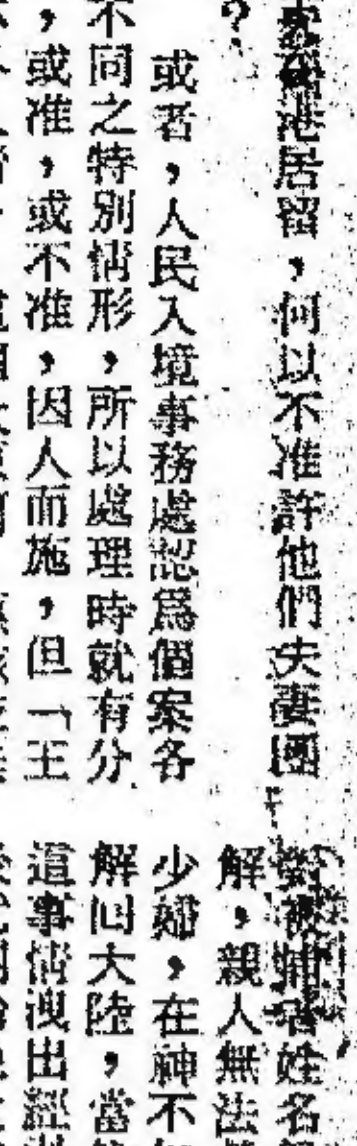 港居留，何以不准許他們夫妻團
？
或者，人民入境事務處認爲個案各
不同之特別情形，所以處理時就有分
，或准，或不准，因人而施，但「王
對被捕者姓名
解，親人無法
少婦，在神不
解回大陸，當
這事情洩出經